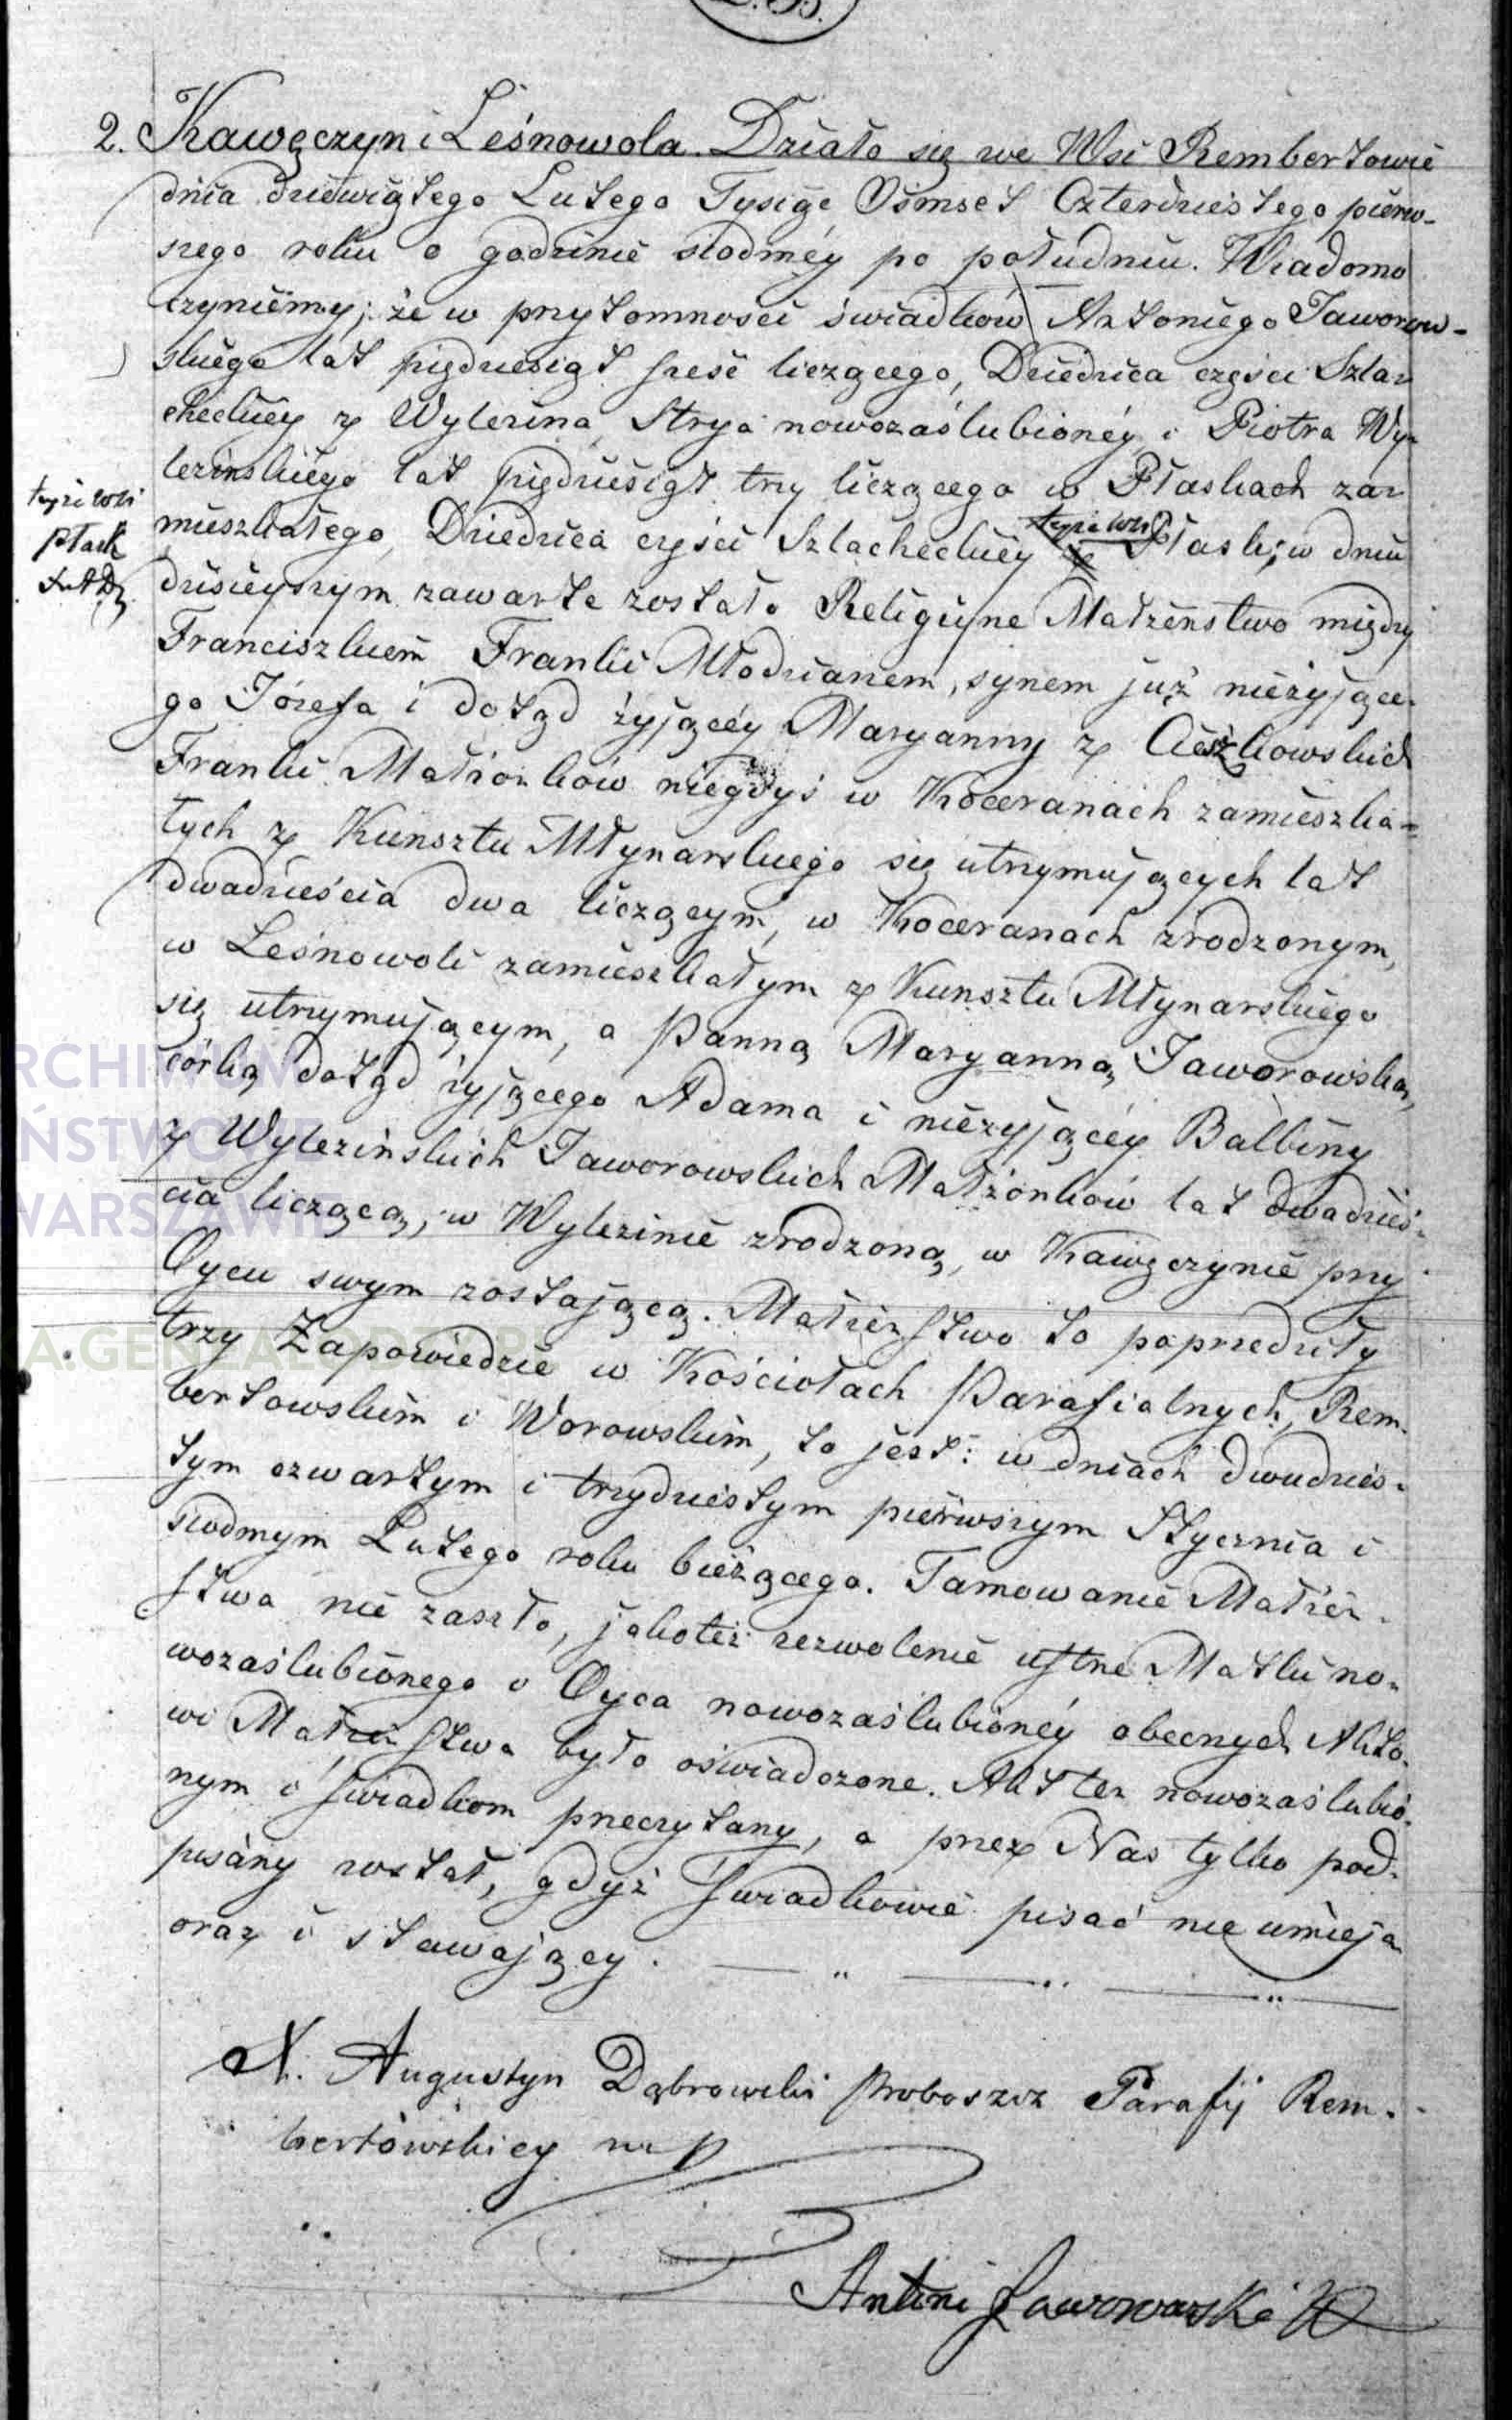 2. Kawęczyn i Leśnowola. Działo się we Wsi Rembertowie
dnia dziewiątego Lutego Tysiąc Ośmset Czterdziestego pierw-
szego roku o godzinie siodméy po południu. Wiadomo
czyniemy; że w przytomności świadków Antoniego Jaworow-
skiego lat piędziesiąt sześć liczącego, Dziedzica części Szla-
checkiéy z Wylezina, Stryja nowozaślubionéy i Piotra Wy-
lezinskiego lat piędziesiąt trzy liczącego w Ptaskach za-
mieszkałego, Dziedzica części Szlacheckiéy tejże wsi Ptask; w dniu
tejże wsi
Ptask
X.A.D.
dzisieyszym zawarte zostało Religijne Małżeństwo między
Franciszkiem Franki Młodzianem, synem już nieżyjące-
go Józefa i dotąd żyjącéy Maryanny z Cieszkowskich
Franki Małżonków niegdyś w Koceranach zamieszka-
łych z Kunsztu Młynarskiego się utrzymujących lat
dwadzieścia dwa liczącym, w Koceranach zrodzonym,
w Leśnowoli zamieszkałym z Kunsztu Młynarskiego
się utrzymującym, a Panną Maryanną Jaworowską,
córką dotąd żyjącego Adama i nieżyjącéy Balbiny
z Wylezińskich Jaworowskich Małżonków lat dwadzieś-
cia liczącą, w Wylezinie zrodzoną, w Kawęczynie przy
Oycu swym zostającą. Małżeństwo to poprzedziły
trzy Zapowiedzie w Kościołach Parafialnych, Rem-
bertowskim i Worowskim, to jest: w dniach dwudzies-
tym czwartym i trzydziestym pierwszym Stycznia i
siodmym Lutego roku bieżącego. Tamowanie Małżeń-
stwa nie zaszło, jakoteż zezwolenie ustne Matki no-
wozaślubionego i Oyca nowozaślubionéy obecnych Akto-
wi Małżeństwa było oświadczone. Akt ten nowozaślubio-
nym i świadkom przeczytany, a przez Nas tylko pod-
pisány został, gdyż świadkowie pisać nie umieją
oraz i stawający.
X. Augustyn Dąbrowski Proboszcz Parafij Rem-
bertowskiey mp
Antoni Jaworowski
ARCHIWUM
PAŃSTWOWE
WARSZAWIE
KA.GENEALODZY.PL